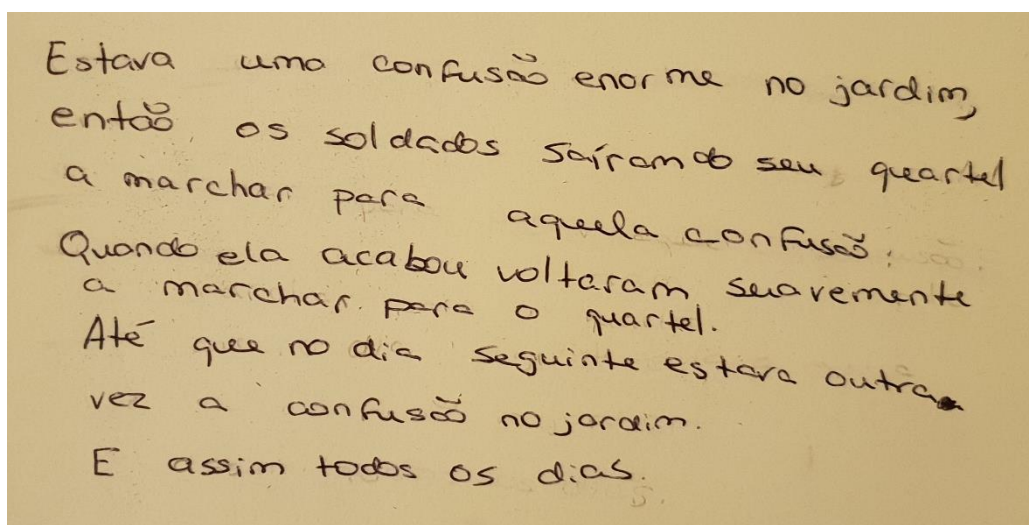 Estava uma confusão enorme no jardim,
então os soldados saíram do seu quartel
a marchar para aquela confusão.
Quando ela acabou voltaram suavemente
a marchar para o quartel.
Até que no dia seguinte estava outra
vez a confusão no jardim.
E assim todos os dias.